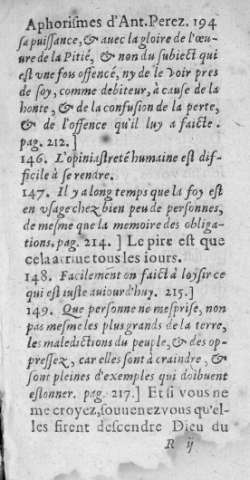 Aphorismes d'Ant. Perez. 194
sa puissance, & auec la gloire de l'œu-
ure de la Pitié, & non du subiect qui
est vne fou offencé, ny de le voir pres
de soy, comme debiteur, à cause de la
honte, & de la confusion de la perte,
& de l'offence qu'il luy a faicte.
pag. 212.]
146. L'opiniastreté humaine est dif-
ficile à se rendre.
147. Il y a long temps que la foy est
en vsage chez bien peu de personnes,
de mesme que la memoire des obliga-
tions. pag. 214. ] Le pire est que
cela arriue tous les iours.
148. Facilement on faict à loysir ce
qui est iuste auiourd'huy. 215.]
149. Que personne ne mesprise, non
pas mesme les plus grands de la terre,
les maledictions du peuple, & des op-
pressez, car elles sont à craindre, &
sont pleines d'exemples qui doibuent
estonner. pag. 217.] Et si vous ne
me croyez, souuenez vous qu'el-
les firent descendre Dieu du
R ij